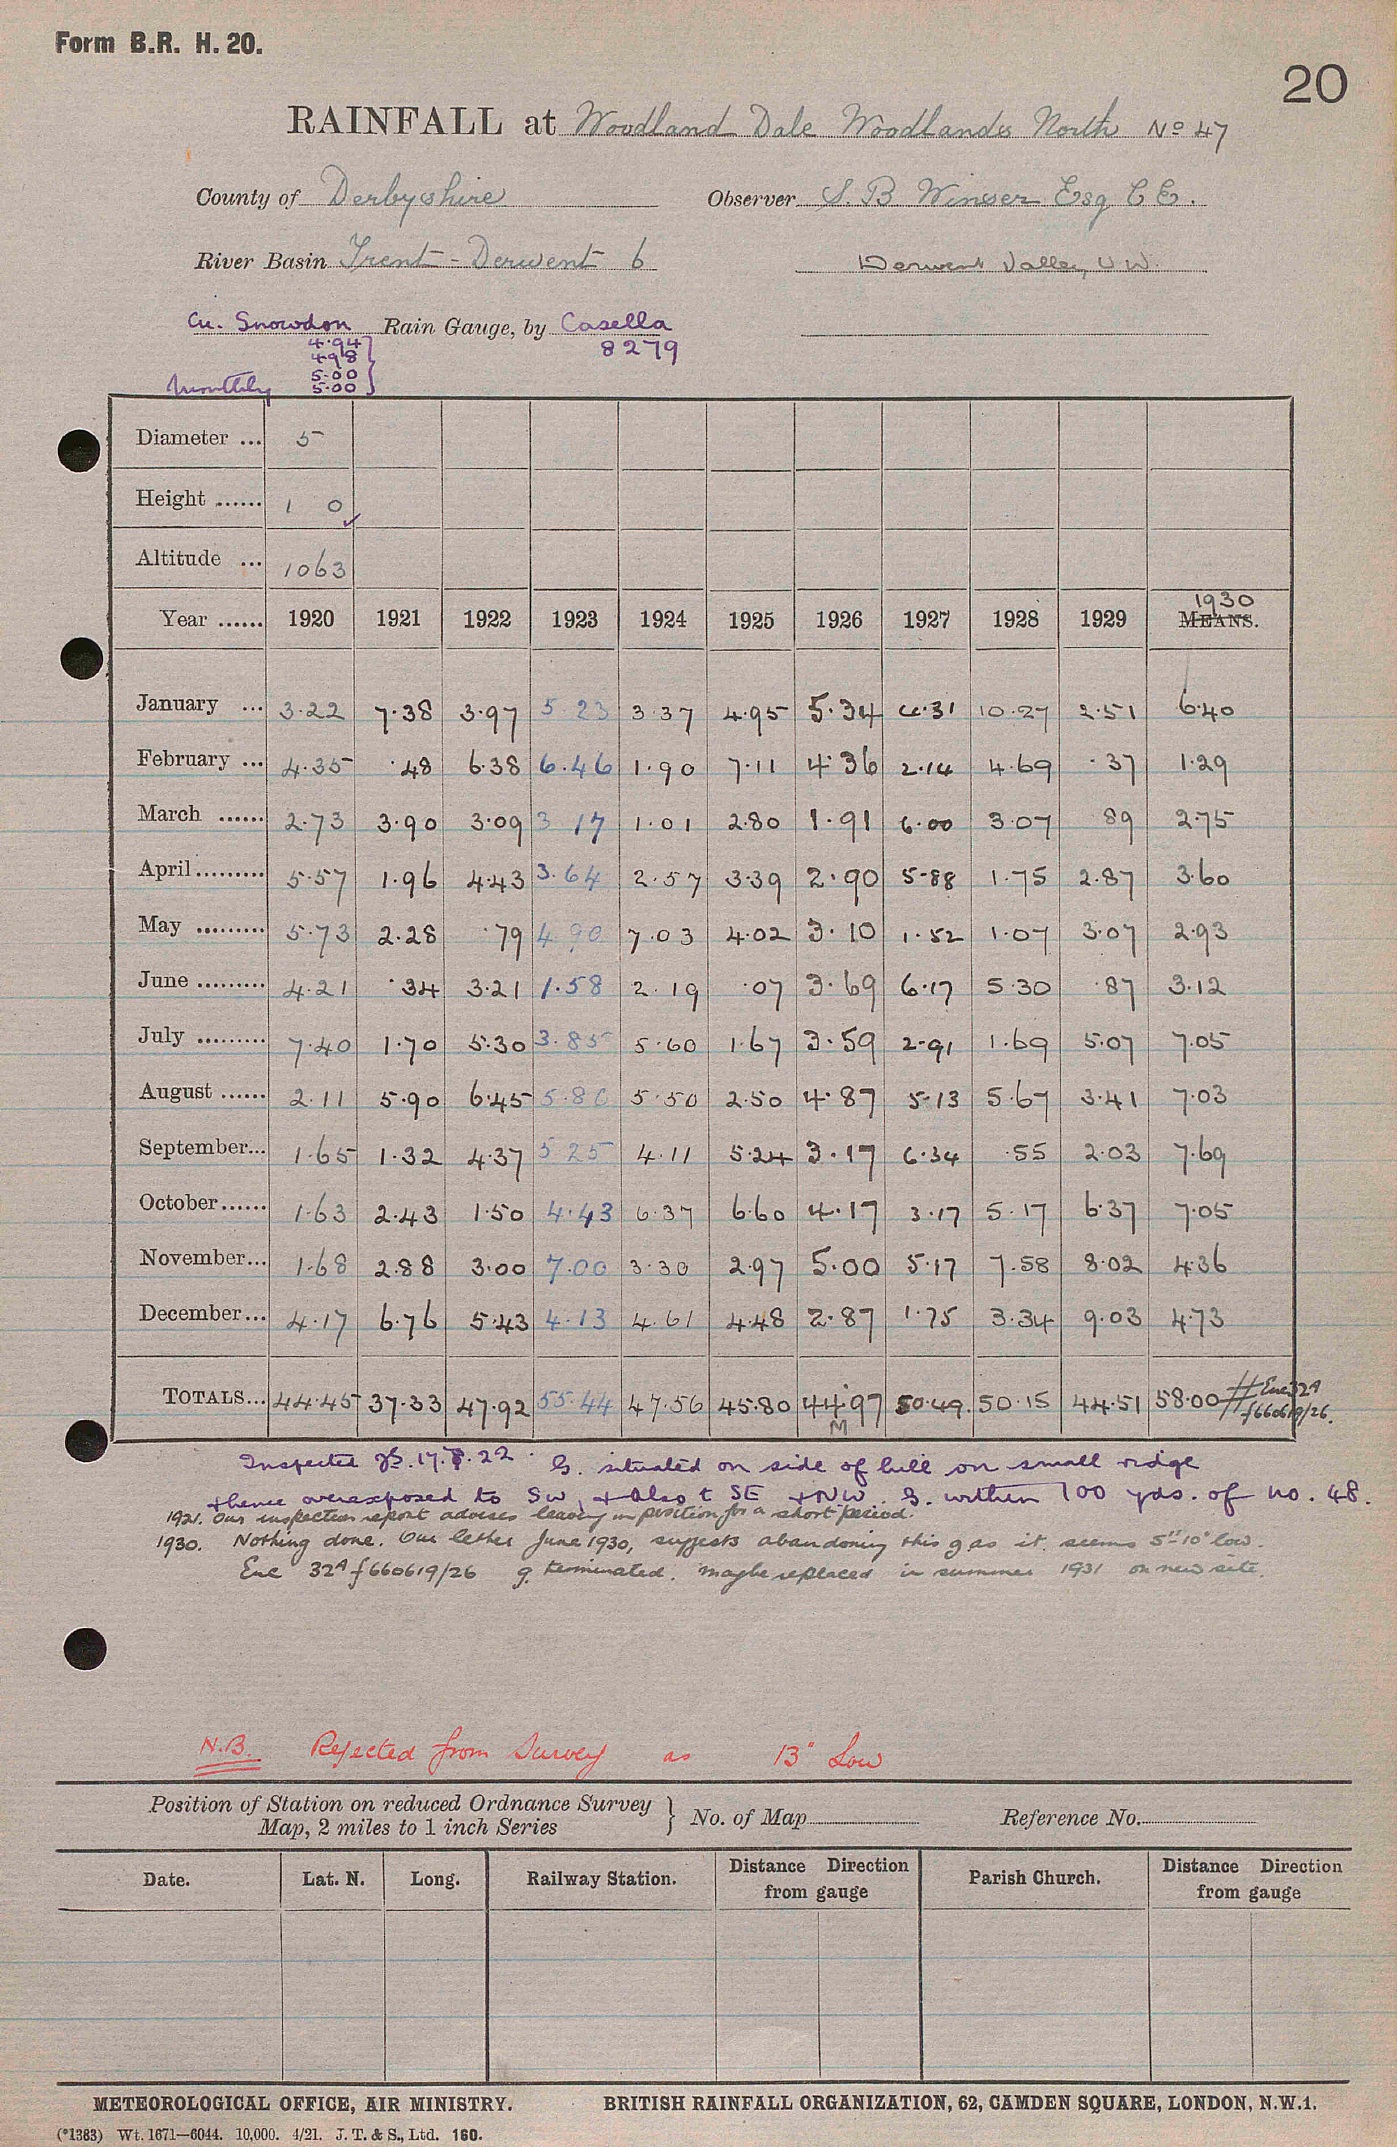 Form B.R. H. 20.
20
RAINFALL at Woodland Dale Woodlands North No 47
County of Derbyshire Observer S. B Winser Esq C E.
River Basin Trent - Derwent 6 Derwent Valley, U W.
Cu. Snowdon Rain Gauge, by Casella
8279
4.94
4.98
5.00
Monthly 5.00
Diameter ... 5
Height ...... 1 0
Altitude ... 1063
1930
Year ...... 1920 1921 1922 1923 1924 1925 1926 1927 1928 1929 MEANS.
January ... 3.22 7.38 3.97 5.23 3.37 4.95 5.34 4.31 10.27 2.51 6.40
February ... 4.35 .48 6.38 6.46 1.90 7.11 4.36 2.14 4.69 .37 1.29
March ...... 2.73 3.90 3.09 3.17 1.01 2.80 1.91 6.00 3.07 89 2.75
April ......... 5.57 1.96 4.43 3.64 2.57 3.39 2.90 5.88 1.75 2.87 3.60
May ......... 5.73 2.28 .79 4.90 7.03 4.02 3.10 1.52 1.07 3.07 2.93
June ......... 4.21 .34 3.21 1.58 2.19 .07 3.69 6.17 5.30 .87 3.12
July ......... 7.40 1.70 5.30 3.85 5.60 1.67 3.59 2.91 1.69 5.07 7.05
August ...... 2.11 5.90 6.45 5.80 5.50 2.50 4.87 5.13 5.67 3.41 7.03
September... 1.65 1.32 4.37 5.25 4.11 5.24 3.17 6.34 .55 2.03 7.69
October...... 1.63 2.43 1.50 4.43 6.37 6.60 4.17 3.17 5.17 6.37 7.05
November... 1.68 2.88 3.00 7.00 3.30 2.97 5.00 5.17 7.58 8.02 4.36
December... 4.17 6.76 5.43 4.13 4.61 4.48 2.87 1.75 3.34 9.03 4.73
TOTALS... 44.45 37.33 47.92 55.44 47.56 45.80 44.97 50.49. 50.15 44.51 58.00 # Enc 32A
M f660619/26.
Inspected 17.8.22 G. situated on side of hill on small ridge
& hence overexposed to SW, & also t SE & NW. G. within 100 yds. of no. 48.
1921. Our inspection report advises leaving in position for a short period.
1930. Nothing done. Our letter June 1930, suggests abandoning this g as it seems 5"-10" low.
Enc 32A f660619/26 g. terminated. maybe replaced in summer 1931 on new site.
N.B. Rejected from Survey as 13" Low
Position of Station on reduced Ordnance Survey
Map, 2 miles to 1 inch Series } No. of Map Reference No.
Date. Lat. N. Long. Railway Station. Distance Direction from gauge Parish Church. Distance Direction from gauge
METEOROLOGICAL OFFICE, AIR MINISTRY. BRITISH RAINFALL ORGANIZATION, 62, CAMDEN SQUARE, LONDON, N.W.1.
(*1383) Wt. 1671—6044. 10,000. 4/21. J. T. & S., Ltd. 160.